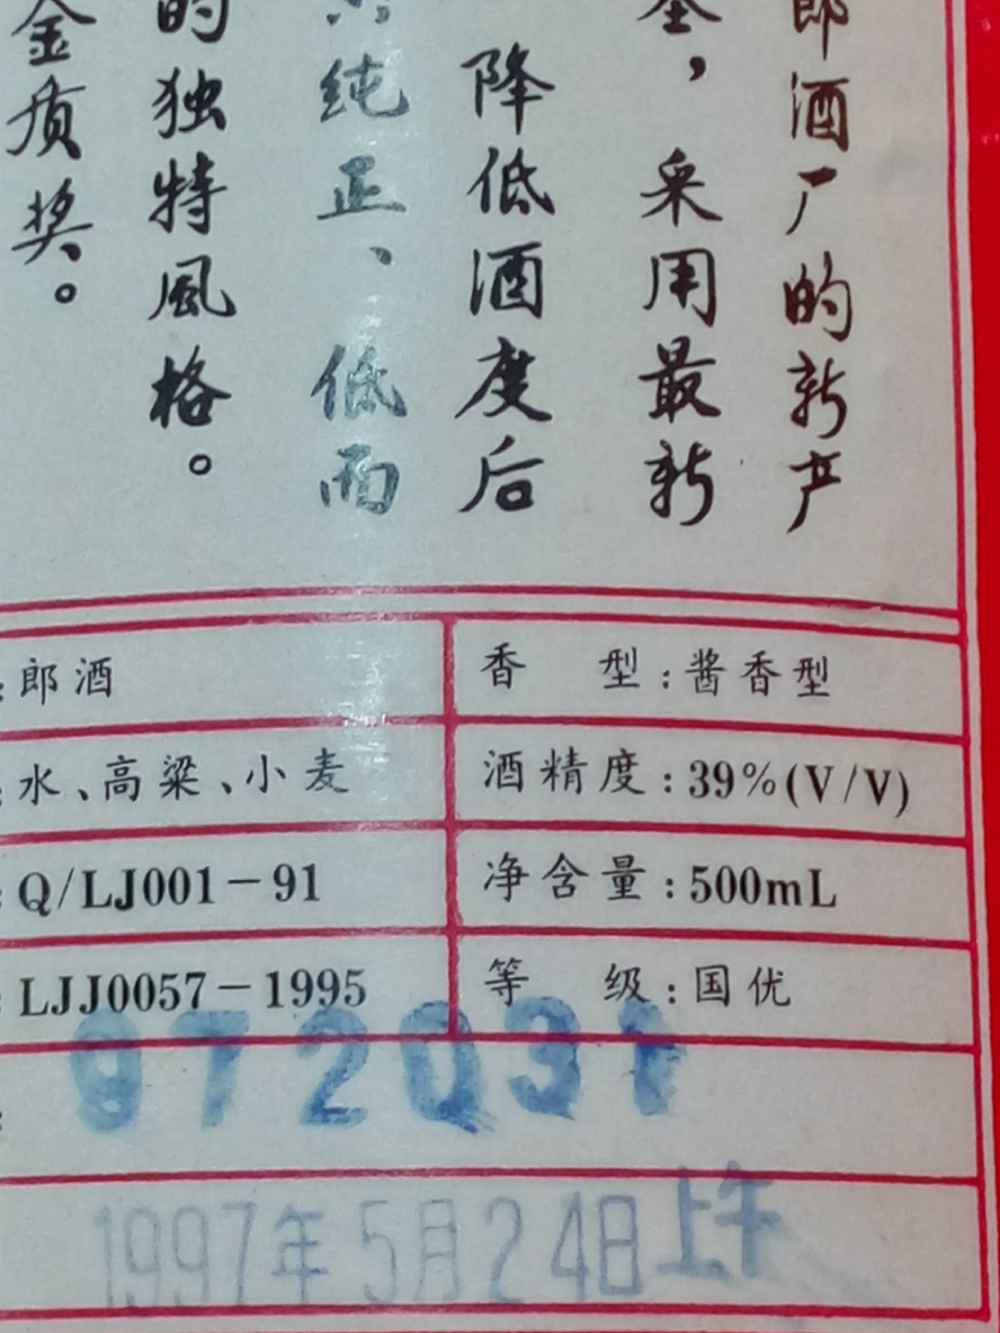 郎酒厂的新产
，采用最新
降低酒度后
纯正、低而
的独特風格。
金质奖。
:郎酒
香 型:酱香型
:水、高粱、小麦
酒精度:39%(V/V)
:Q/LJ001-91
净含量:500mL
:LJJ0057-1995
等 级:国优
972031
1997年5月24日上午